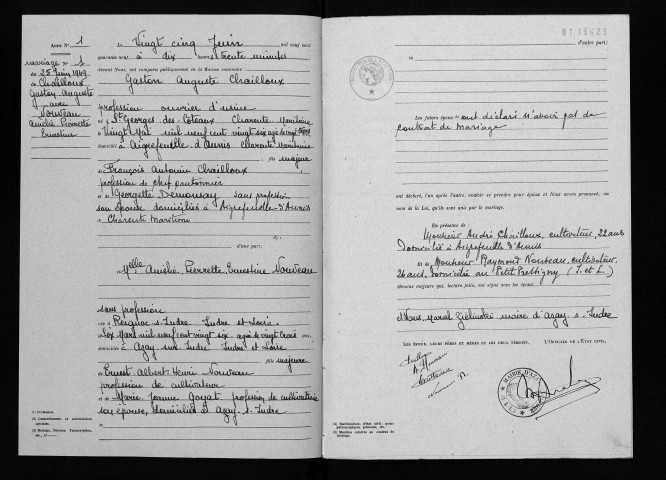 Acte N° 1
mariage N° 1
du 25 juin 1949
Chailloux
Gaston Auguste
avec
Nouveau
Amélie Pierrette
Ernestine
Le Vingt cinq Juin mil neuf cent
quarante-neuf à dix heures trente minutes
devant Nous, ont comparu publiquement en la Maison commune :
Gaston Auguste Chailloux
profession ouvrier d'usine
né à St Georges des Coteaux Charente Maritime
le Vingt Mai mil neuf cent vingt six âgé de vingt trois ans
domicilié à Aigrefeuille d'Aunis Charente Maritime
fils majeur
de François Antonin Chailloux
profession de chef cantonnier
et de Georgette sans profession
son épouse domiciliés à Aigrefeuille-d'Aunis
Charente Maritime
d'une part;
Melle Amélie Pierrette Ernestine Nouveau
sans profession
née à Reignac s. Indre Indre et Loire
le Six Mars mil neuf cent vingt six âgée de vingt trois ans
domiciliée à Azay sur Indre Indre et Loire
fille majeure
de Ernest Albert Henri Nouveau
profession de cultivateur
et de Marie Jeanne profession de cultivatrice
son épouse, domiciliés à Azay s. Indre
(1) Profession.
d'autre part;
Les futurs époux ont déclaré n'avoir pas de
contrat de mariage
ont déclaré, l'un après l'autre, vouloir se prendre pour époux et Nous avons prononcé, au
nom de la Loi, qu'ils sont unis par le mariage.
En présence de :
Monsieur André Chailloux, cultivateur, 22 ans
domicilié à Aigrefeuille d'Aunis
Et de Monsieur Raymond Nouveau, cultivateur
26 ans, domicilié au Petit Pressigny (I. et L.)
témoins majeurs qui, lecture faite, ont signé avec les époux
et Nous, Marcel Zielinski maire d'Azay s. Indre
LES ÉPOUX, LEURS PÈRES ET MÈRES ET LES DEUX TÉMOINS,
L'OFFICIER DE L'ÉTAT CIVIL,